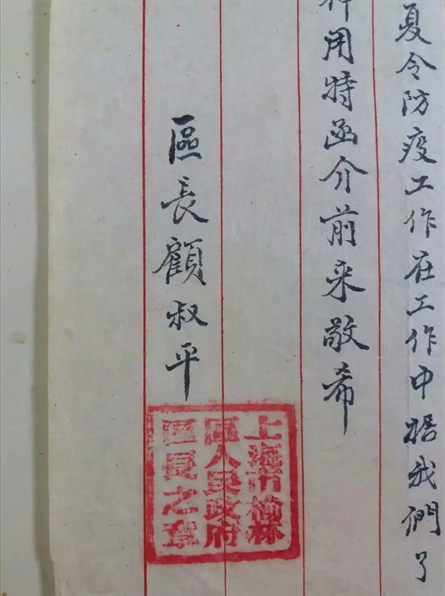 夏令防疫工作在工作中据我們了
用特函介前来敬希
區長顧叔平
上海市榆林
區人民政府
區長之章